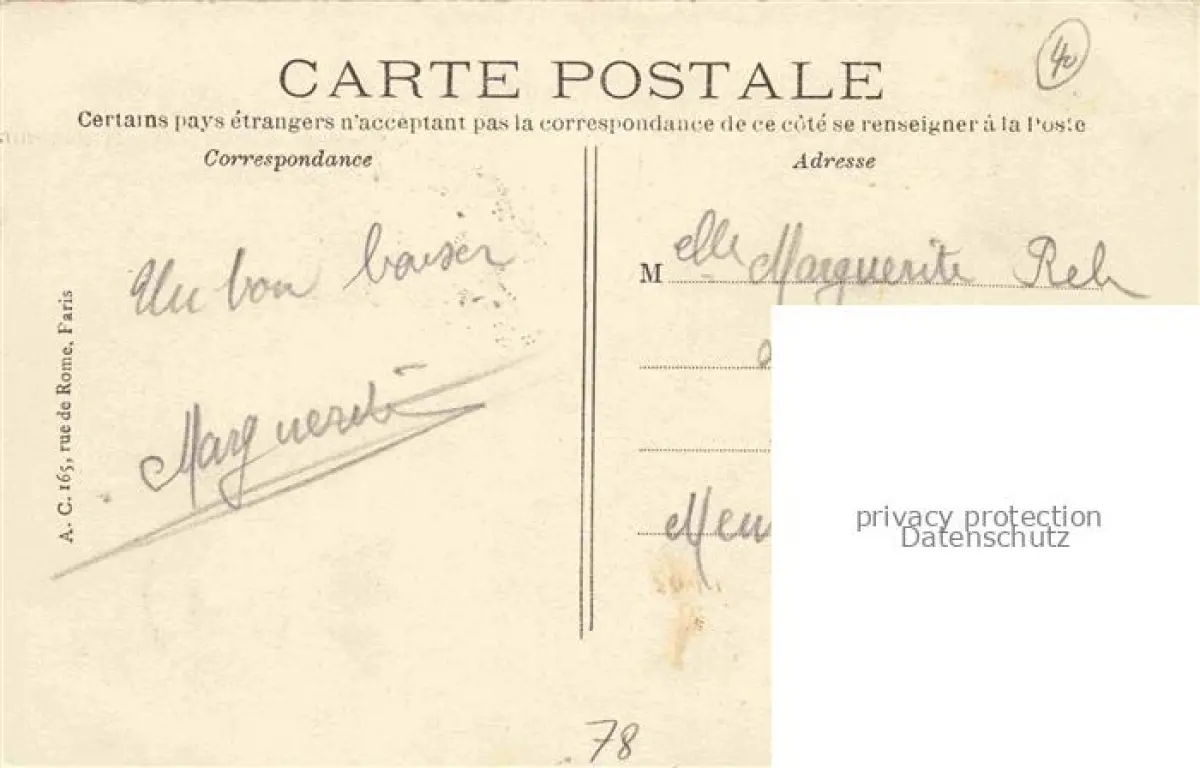 40
CARTE POSTALE
Certains pays étrangers n'acceptant pas la correspondance de ce côté se renseigner à la Poste
Correspondance
Un bon baiser
Marguerite
A. C. 165, rue de Rome, Paris
Adresse
Melle Marguerite
privacy protection
Datenschutz
78